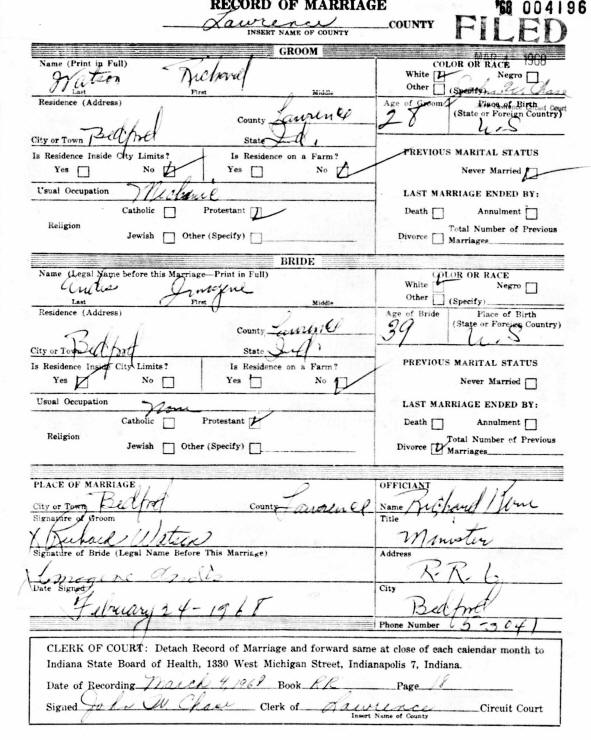 RECORD OF MARRIAGE
'68 004196
Lawrence COUNTY
INSERT NAME OF COUNTY
FILED
1968
GROOM
Name (Print in Full)
Watson Richard
Last First Middle
COLOR OR RACE
White Negro
Other (Specify)
John W. Chase
Residence (Address)
County Lawrence
City or Town Bedford State Ind.
Age of Groom
28
Place of Birth
(State or Foreign Country)
U.S
Is Residence Inside City Limits?
Yes No
Is Residence on a Farm?
Yes No
PREVIOUS MARITAL STATUS
Never Married
Usual Occupation Mechanic
LAST MARRIAGE ENDED BY:
Religion
Catholic Protestant
Jewish Other (Specify)
Death Annulment
Divorce Total Number of Previous
Marriages
BRIDE
Name (Legal Name before this Marriage—Print in Full)
Imogene
Last First Middle
COLOR OR RACE
White Negro
Other (Specify)
Residence (Address)
County Lawrence
City or Town Bedford State Ind.
Age of Bride
39
Place of Birth
(State or Foreign Country)
U.S
Is Residence Inside City Limits?
Yes No
Is Residence on a Farm?
Yes No
PREVIOUS MARITAL STATUS
Never Married
Usual Occupation None
LAST MARRIAGE ENDED BY:
Religion
Catholic Protestant
Jewish Other (Specify)
Death Annulment
Divorce Total Number of Previous
Marriages
PLACE OF MARRIAGE
City or Town Bedford County Lawrence
OFFICIANT
Name Richard
Signature of Groom
X Richard Watson
Title
Minister
Signature of Bride (Legal Name Before This Marriage)
X Imogene
Address
R.R. 6
Date Signed
February 24-1968
City
Bedford
Phone Number 5-3041
CLERK OF COURT: Detach Record of Marriage and forward same at close of each calendar month to
Indiana State Board of Health, 1330 West Michigan Street, Indianapolis 7, Indiana.
Date of Recording March 4, 1968 Book RR Page 18
Signed John W Chase Clerk of Lawrence Circuit Court
Insert Name of County